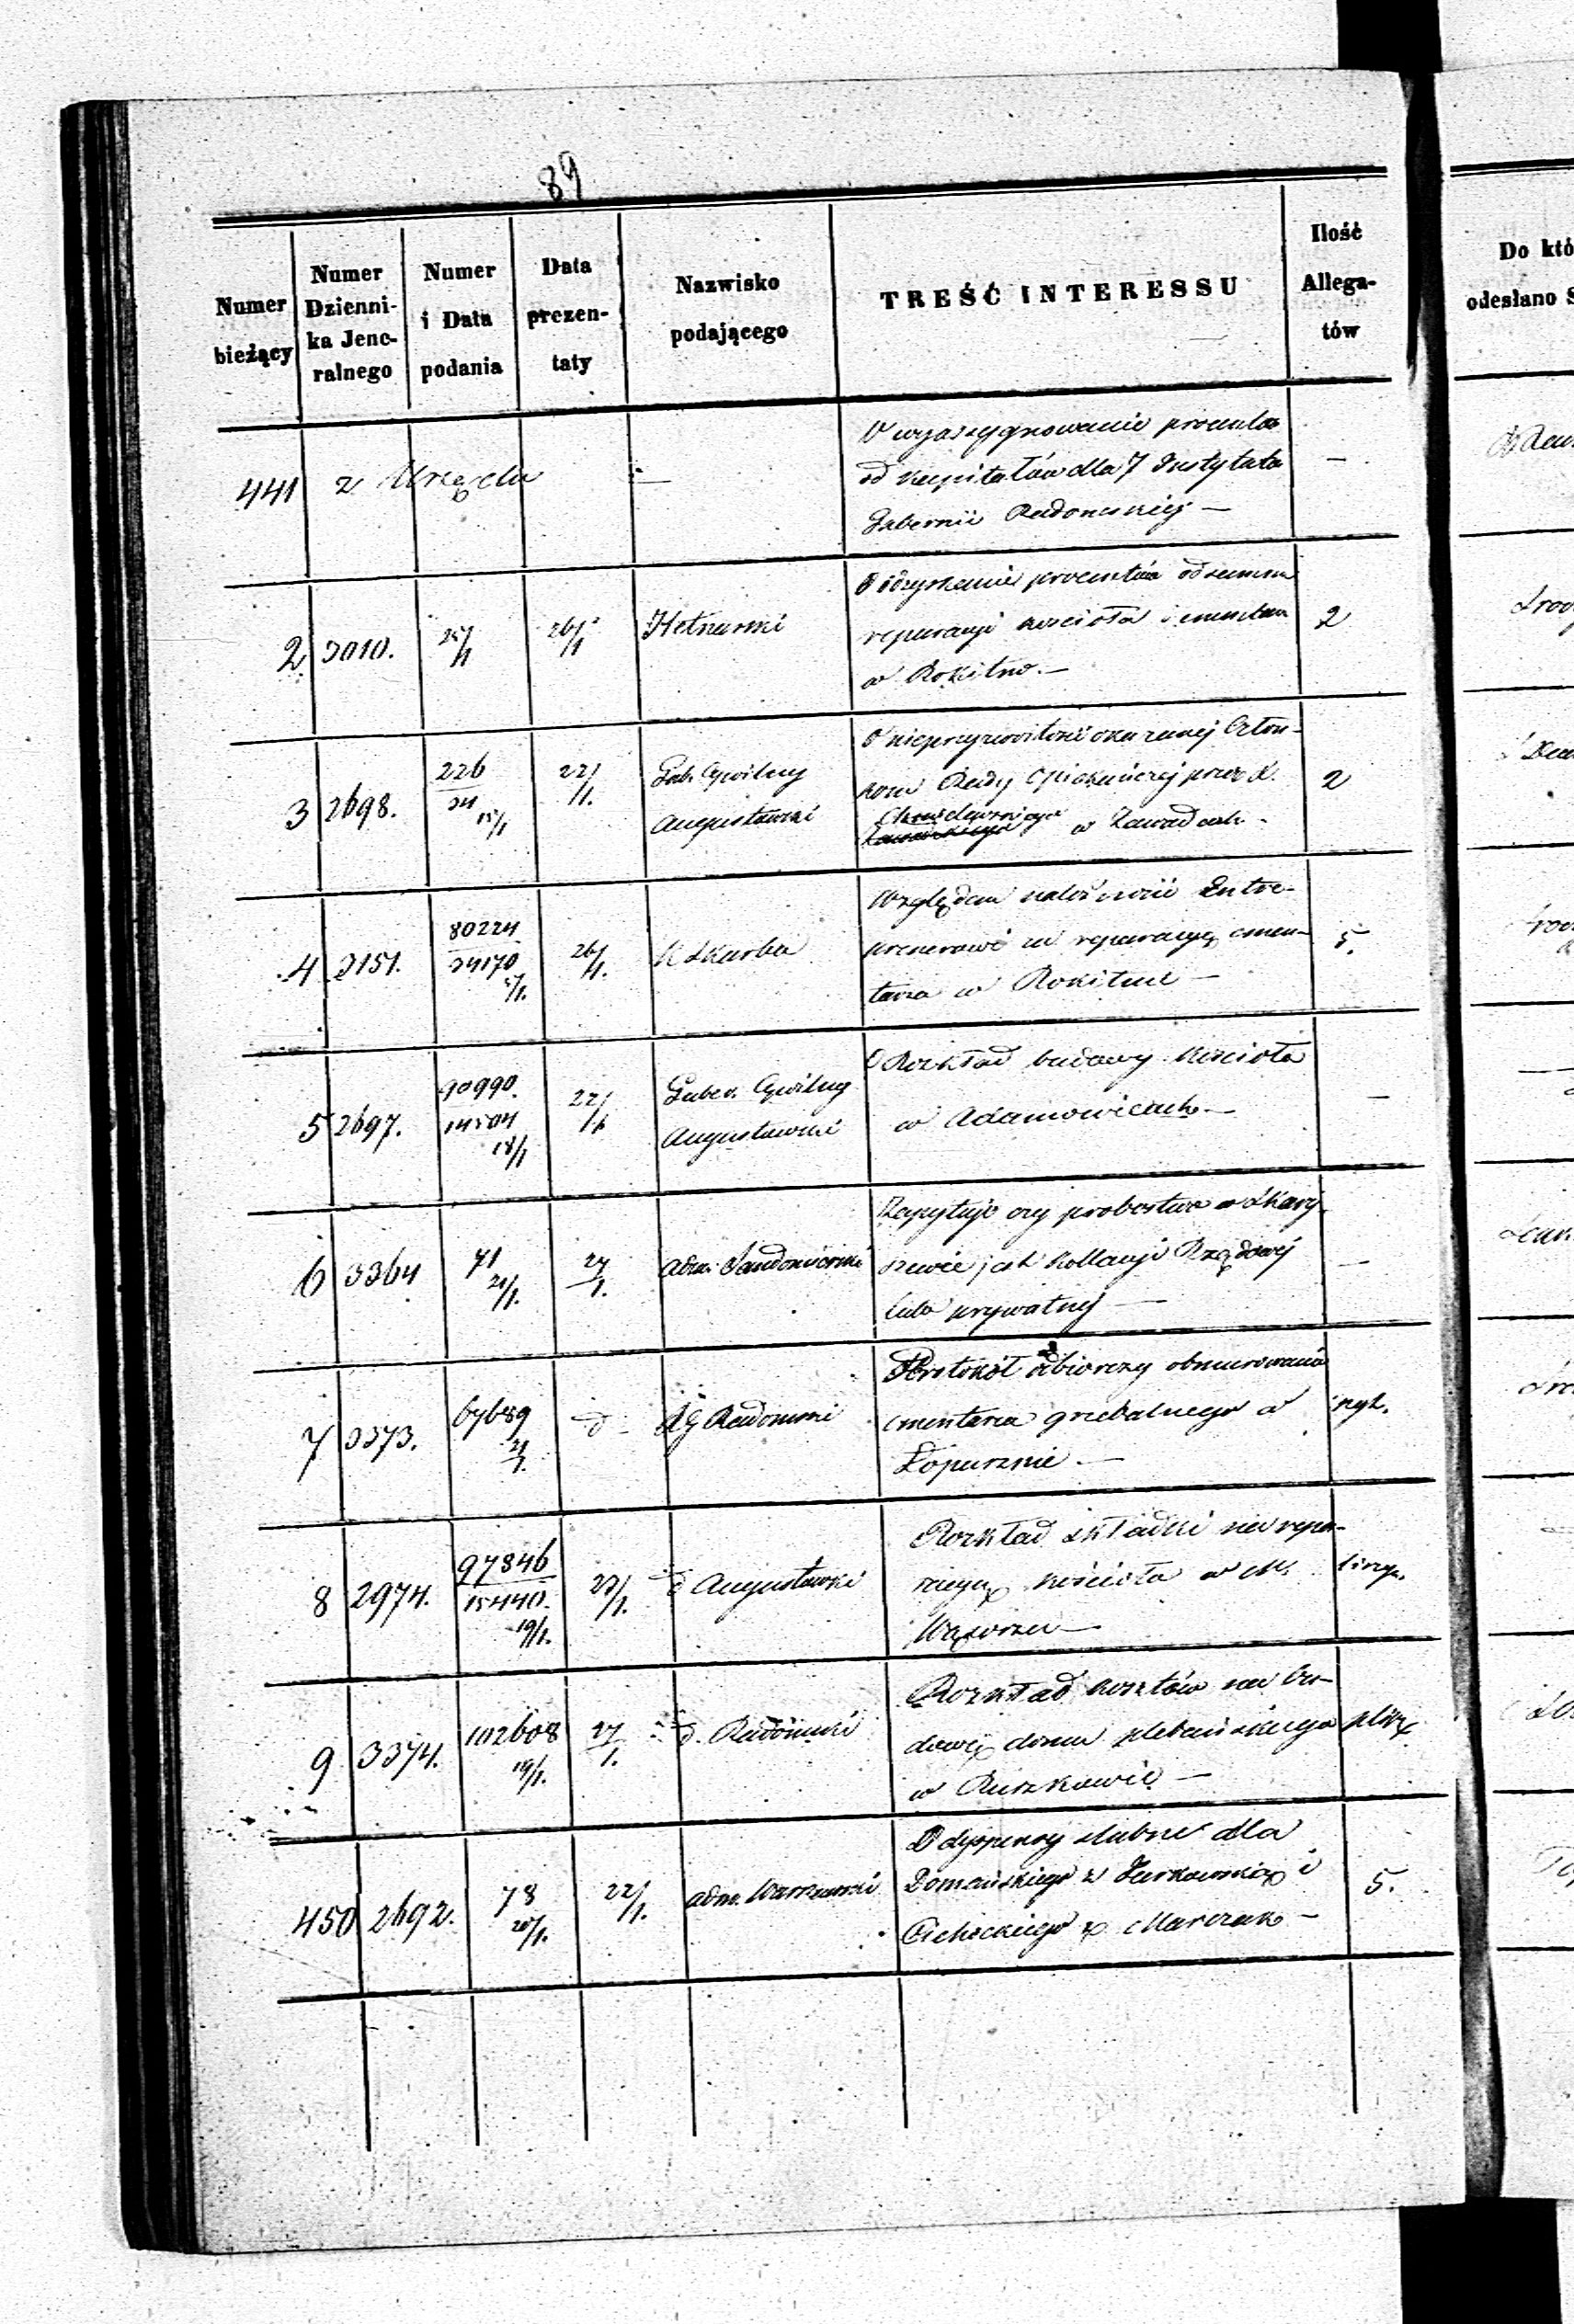 89
Numer bieżący
Numer Dzienni- ka Jene- ralnego
Numer i Data podania
Data prezen- taty
Nazwisko podającego
TREŚĆ INTERESSU
Ilość Allega- tów
Do któ
odesłano S
441 z Urzędu —
O wyassygnowanie procentów
od kapitałów dla 7 Instytuta
Gubernii Radomskiej —
—
2 3010. 25/1 26/1
procentów od summ
reparacji kościoła i
w Rokitno. —
2
3 2698. 226 / 34 15/1 22/1.
Gub. Cywilny
Augustowski
O nieprzyzwoitość okazanej Człon-
kom Rady Opiekuńczej przez X.
w Zawadach -
2
4 3151. 80224 / 34170 26/1.
K Skarbu
Względem należności Entre-
prenerowi za reparacyę cmen-
tarza w Rokitnie —
5.
5 2697. 90990. / 14504 18/1 22/1
Guber. Cywilny
Augustowski
O Rozkład budowy kościoła
w Adamowiczach —
—
6 3364 71 21/1. 27/1.
Adm. Sandomierski
Zapytuje czy probostwo w Skary-
szewie jest kollacyi Rządowej
lub prywatnej —
—
7 3373. 67689 21/1. - d -
RG Radomski
Protokół odbiorczy obmurowania
cmentarza grzebalnego w
Łopusznie. —
8 2974. 97846 / 15440. 19/1. 23/1.
d Augustowski
Rozkład składki na repa-
racyę kościoła w M.
Wąsoszu —
9 3374. 102608 19/1. 27/1.
d. Radomski
Rozkład kosztów na bu-
dowę domu plebańskiego
w Ruszkowie —
450 2692. 78 20/1. 22/1.
Adm. Warszawski
O dyspensy ślubne dla
Domańskiego z Jurkowską i
Cichockiego z Marczak —
5.